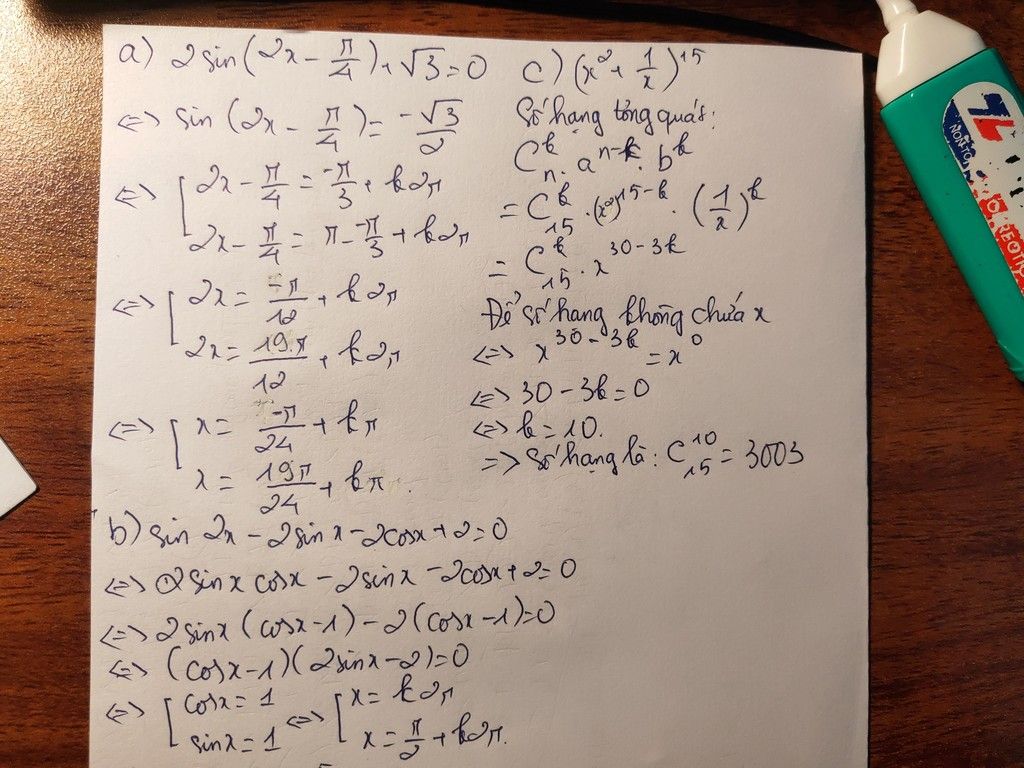 a) 2sin(2x - π/4) + √3 = 0
<=> sin(2x - π/4) = -√3/2
<=> [ 2x - π/4 = -π/3 + k2π
2x - π/4 = π - -π/3 + k2π
<=> [ 2x = -π/12 + k2π
2x = 19π/12 + k2π
<=> [ x = -π/24 + kπ
x = 19π/24 + kπ.
b) sin2x - 2sinx - 2cosx + 2 = 0
<=> 2sinx cosx - 2sinx - 2cosx + 2 = 0
<=> 2sinx (cosx - 1) - 2(cosx - 1) = 0
<=> (cosx - 1)(2sinx - 2) = 0
<=> [ cosx = 1 <=> [ x = k2π
sinx = 1 x = π/2 + k2π.
c) (x² + 1/x)¹⁵
Số hạng tổng quát:
Cₙᵏ . aⁿ⁻ᵏ . bᵏ
= C₁₅ᵏ . (x²)¹⁵⁻ᵏ . (1/x)ᵏ
= C₁₅ᵏ . x³⁰⁻³ᵏ
Để số hạng không chứa x
<=> x³⁰⁻³ᵏ = x⁰
<=> 30 - 3k = 0
<=> k = 10.
=> Số hạng là: C₁₅¹⁰ = 3003